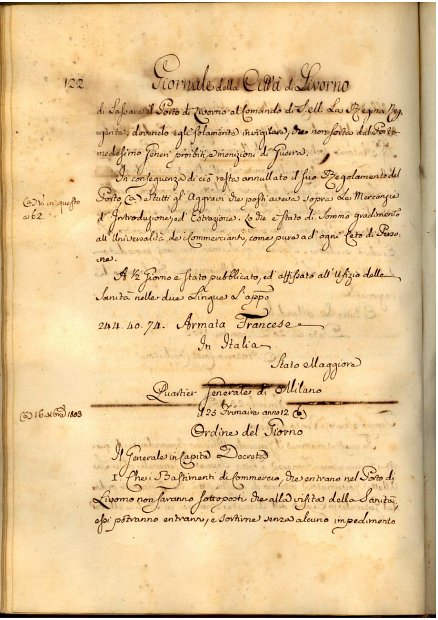 122
Giornale della Città di Livorno
di Lasciare il Porto di Livorno al Comando di S. la Regina Reg
gente, dovendo egli solamente invigilare, che non sortino dal Porto
medesimo Generi proibiti, e monizioni di Guerra.
In conseguenza di ciò resta annullato il suo Regolamento del
Porto (a) e tutti gli Aggravi che posti aveva sopra le Mercanzie
(a) V. in questo
a 62.
d'Introduzione, ed Estrazione. Lo che è stato di sommo gradimento
all'Universalità dei Commercianti, come pure ad ogni Ceto di Perso
ne.
A Giorno è stato pubblicato, ed affissato all'Ufizio della
Sanità nelle due Lingue L'app.o
244. 40. 74. Armata Francese
In Italia
Stato Maggiore
Quartier Generale di Milano
(a) 16 Xbre 1803
d 25 Frimaire anno 12 (a)
Ordine del Giorno
Il Generale in Capite Decreta
1. Che i Bastimenti di Commercio, che entrano nel Porto di
Livorno non saranno sottoposti che alla visita della Sanità,
essi potranno entrare, e sortirne senza alcuno impedimento